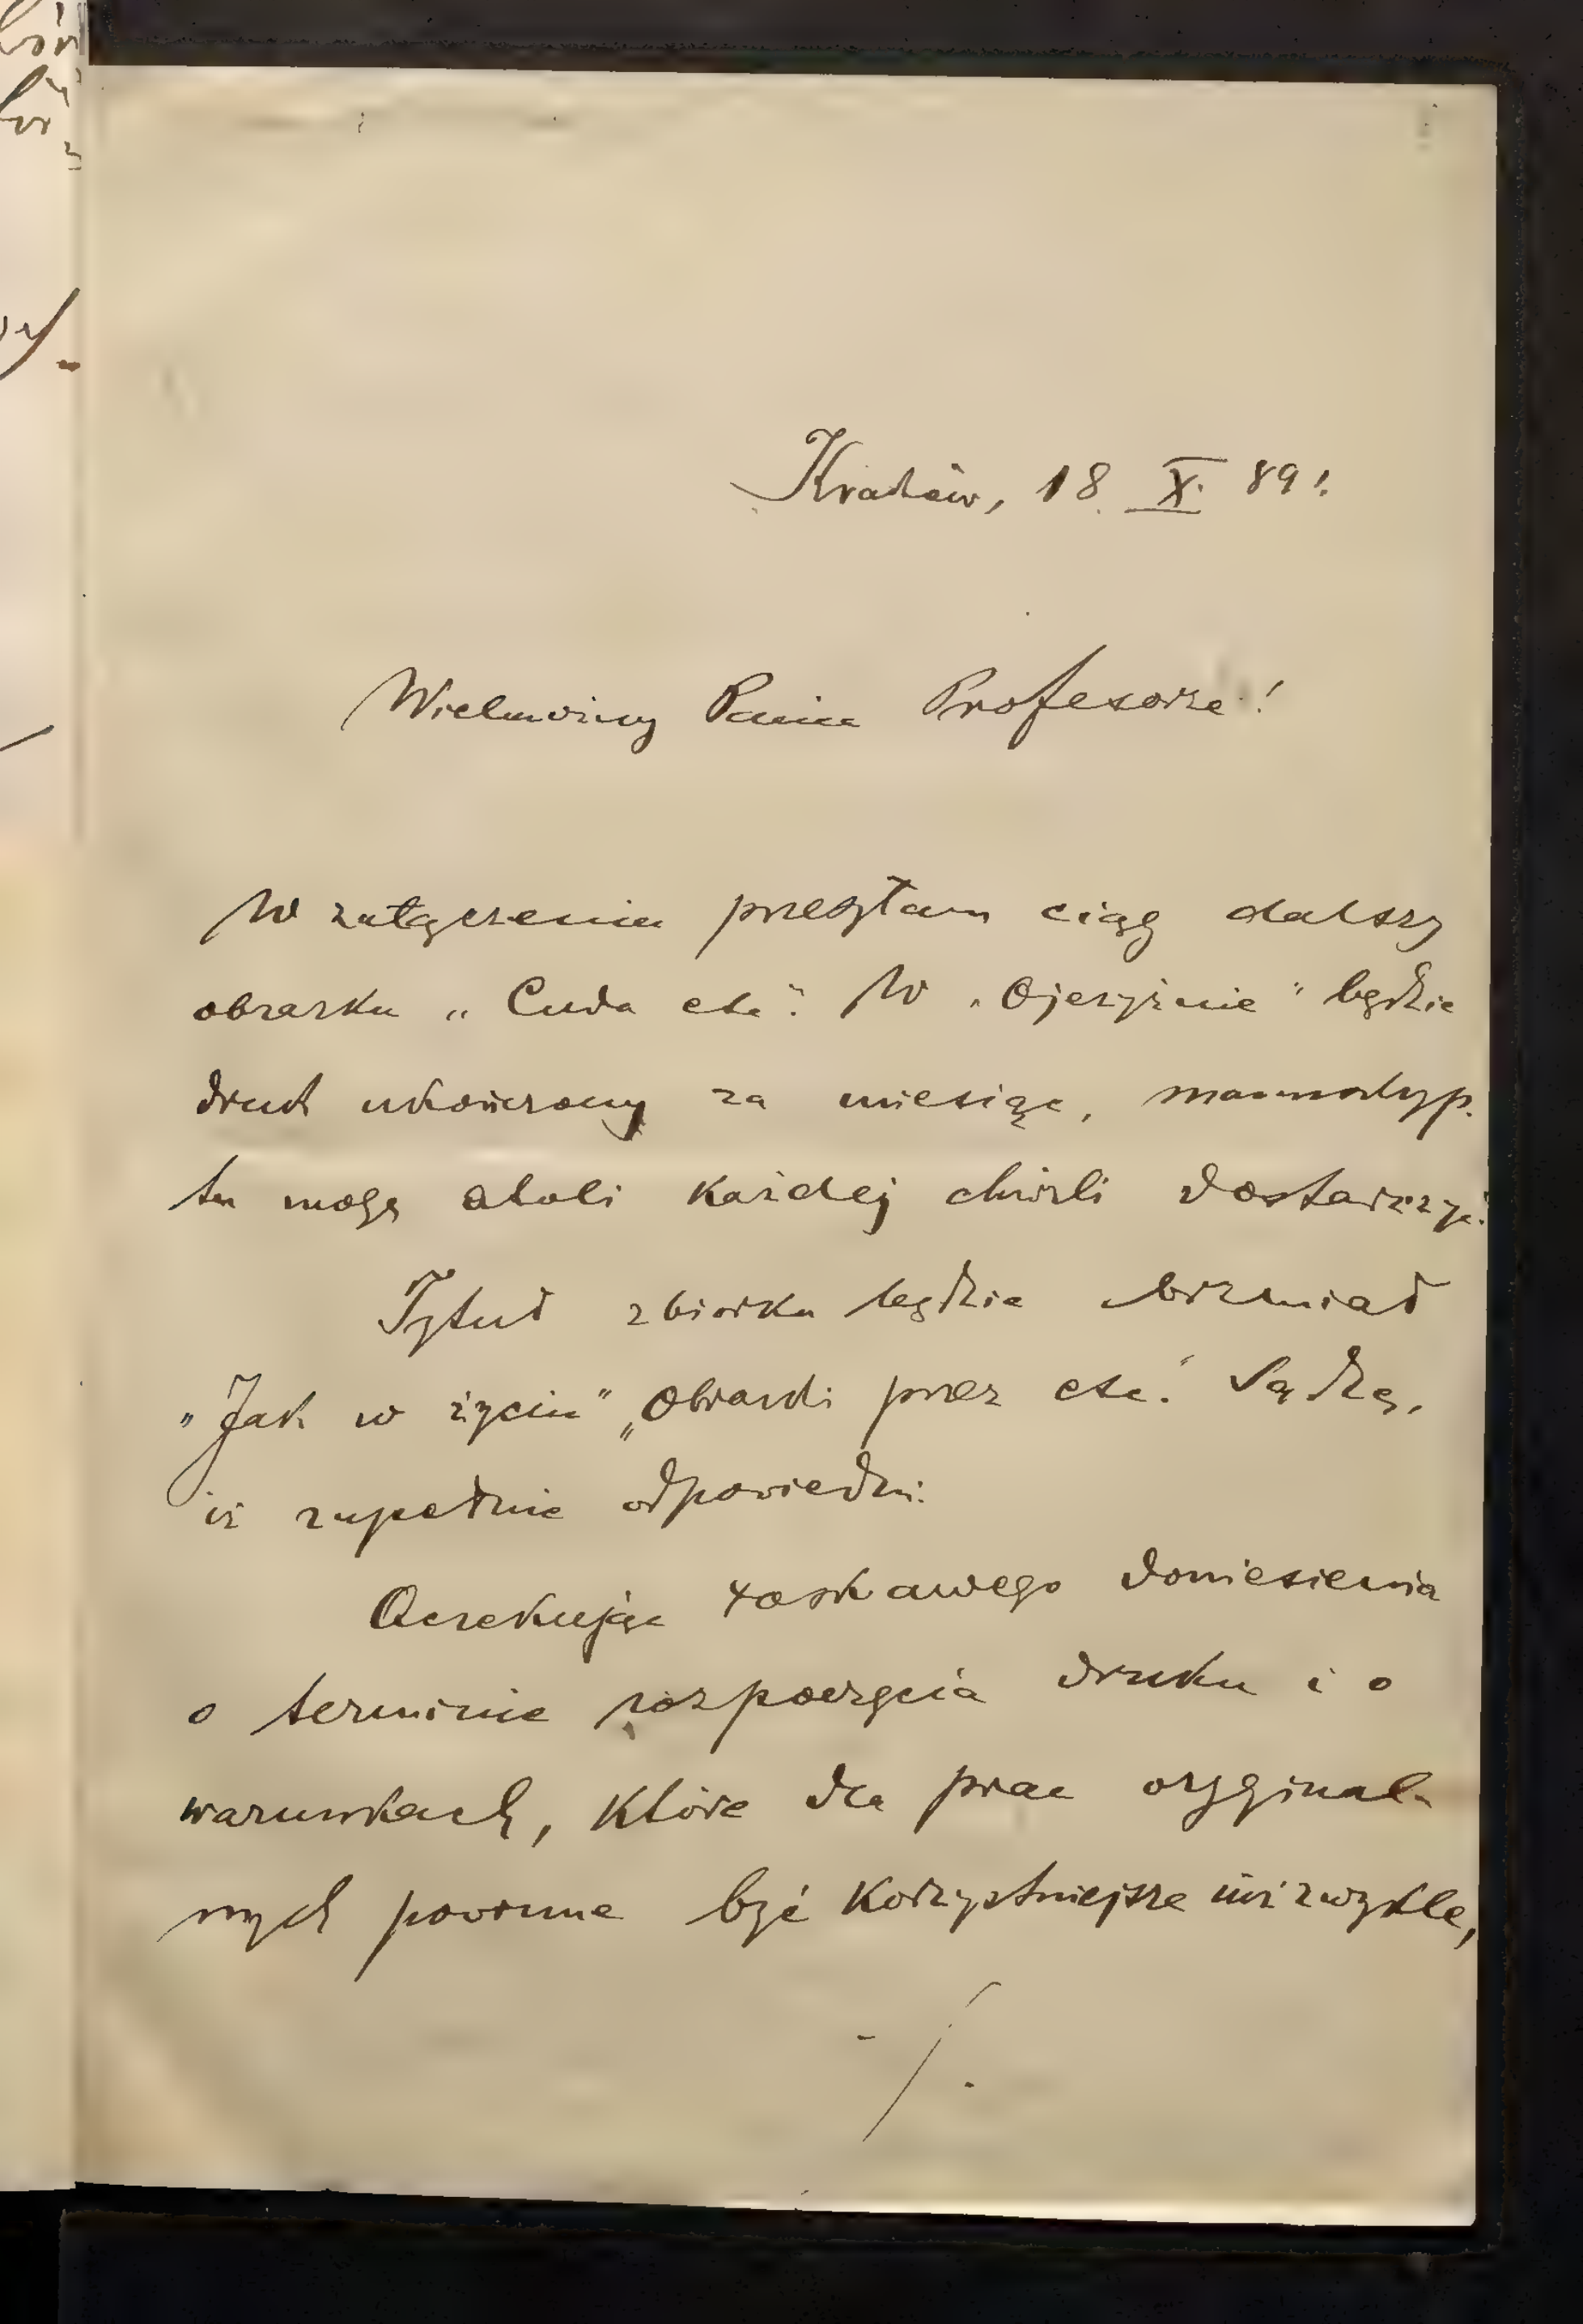 Kraków, 18. X. 89 r.
Wielmożny Panie Profesorze!
W załączeniu przesyłam ciąg dalszy
obrazku „Cuda etc." W „Ojczyźnie" będzie
druk ukończony za miesiąc, manuskryp-
tu mogę atoli każdej chwili dostarczyć.
Tytuł zbiorku będzie brzmiał
„Jak w życiu" „Obrazki przez etc." Sądzę,
iż zupełnie odpowiedni.
Oczekując łaskawego doniesienia
o terminie rozpoczęcia druku i o
warunkach, które dla prac orygina-
nych powinne być korzystniejsze niż zwykle,